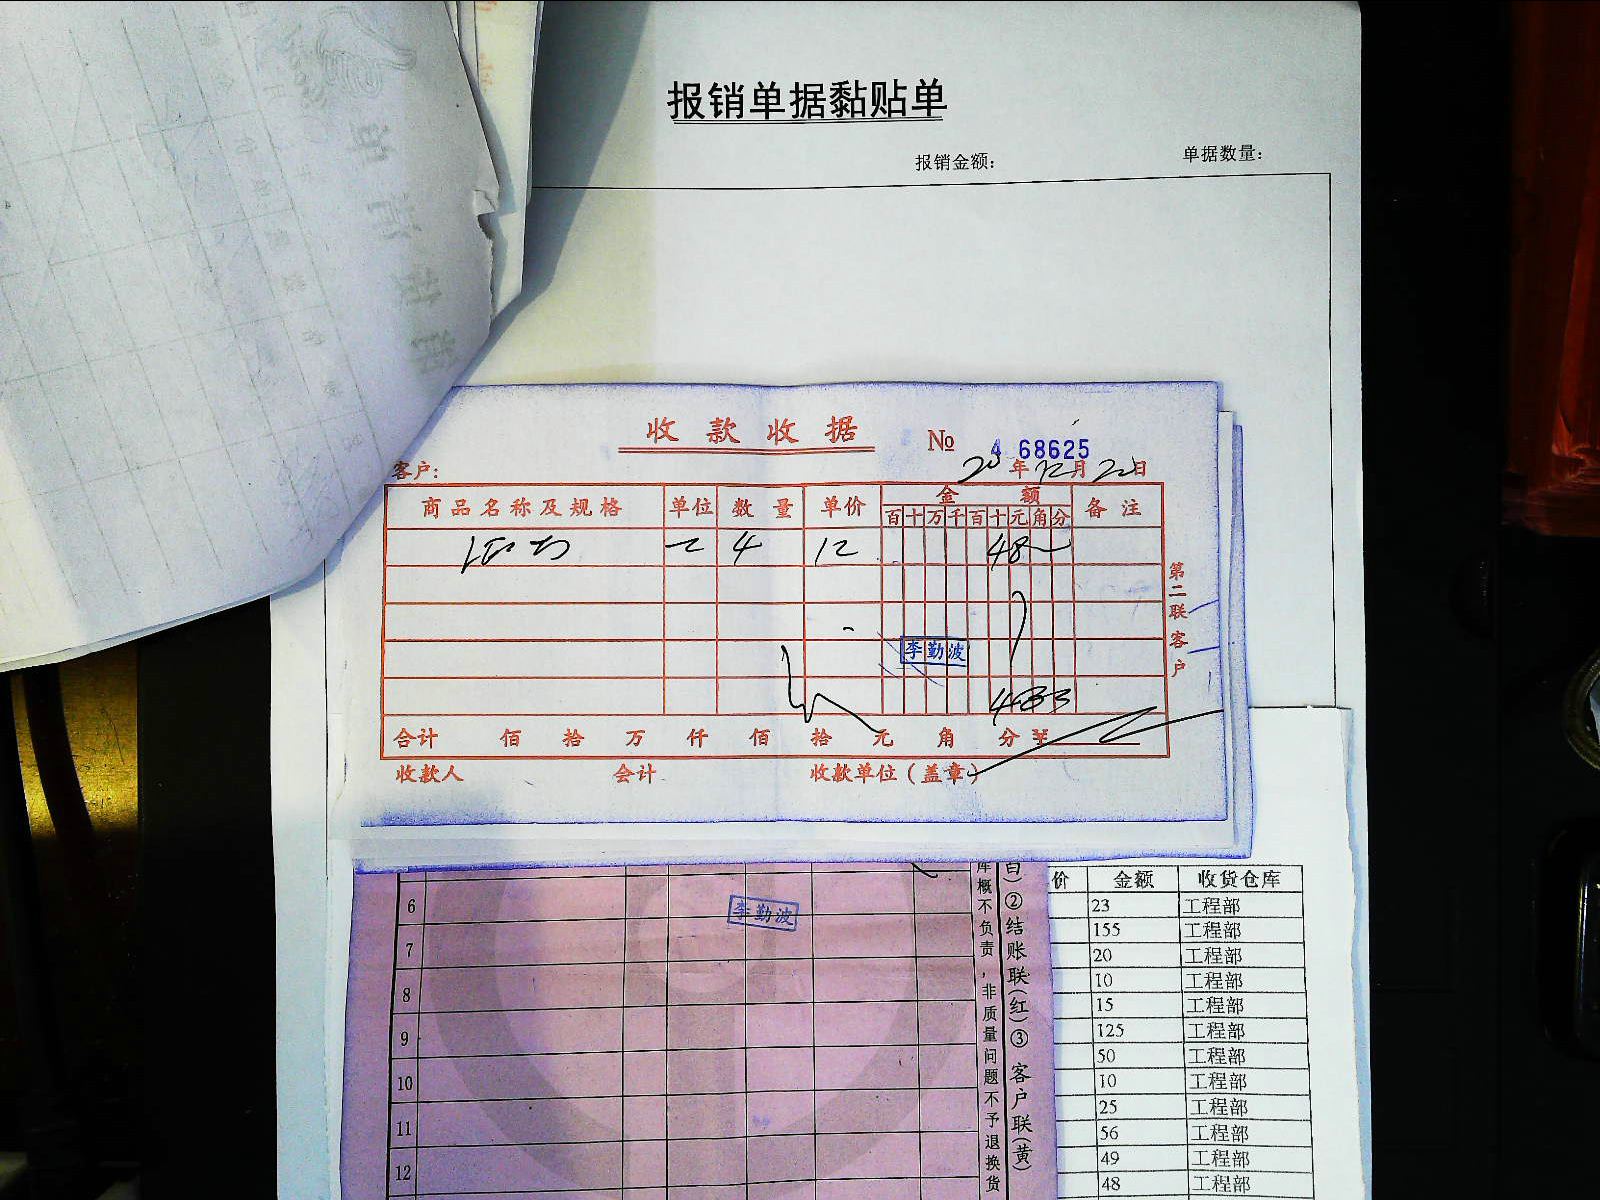 报销单据黏贴单
报销金额：
单据数量：
收款收据
№
68625
客户：
20 年 12 月 20 日
商品名称及规格 单位 数量 单价 金额 备注
百 十 万 千 百 十 元 角 分
4 12 48
李勤波
合计 佰 拾 万 仟 佰 拾 元 角 分 ¥
收款人 会计 收款单位（盖章）
第二联客户
李勤波
6
7
8
9
10
11
12
库概不负责，非质量问题不予退换货
白）②结账联（红）③客户联（黄）
价 金额 收货仓库
23 工程部
155 工程部
20 工程部
10 工程部
15 工程部
125 工程部
50 工程部
10 工程部
25 工程部
56 工程部
49 工程部
48 工程部